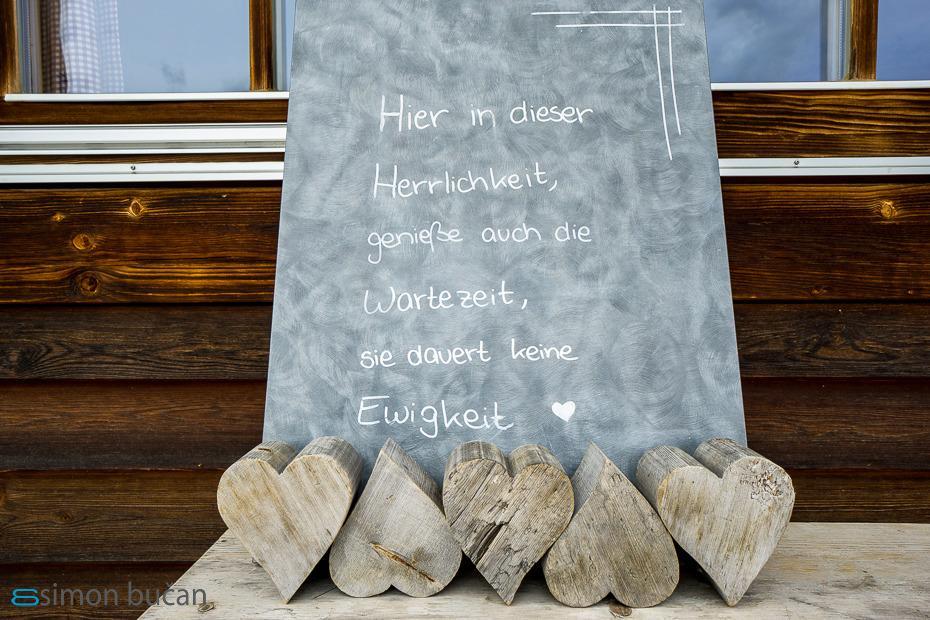 Hier in dieser
Herrlichkeit,
genieße auch die
Wartezeit,
sie dauert keine
Ewigkeit
simon bučan